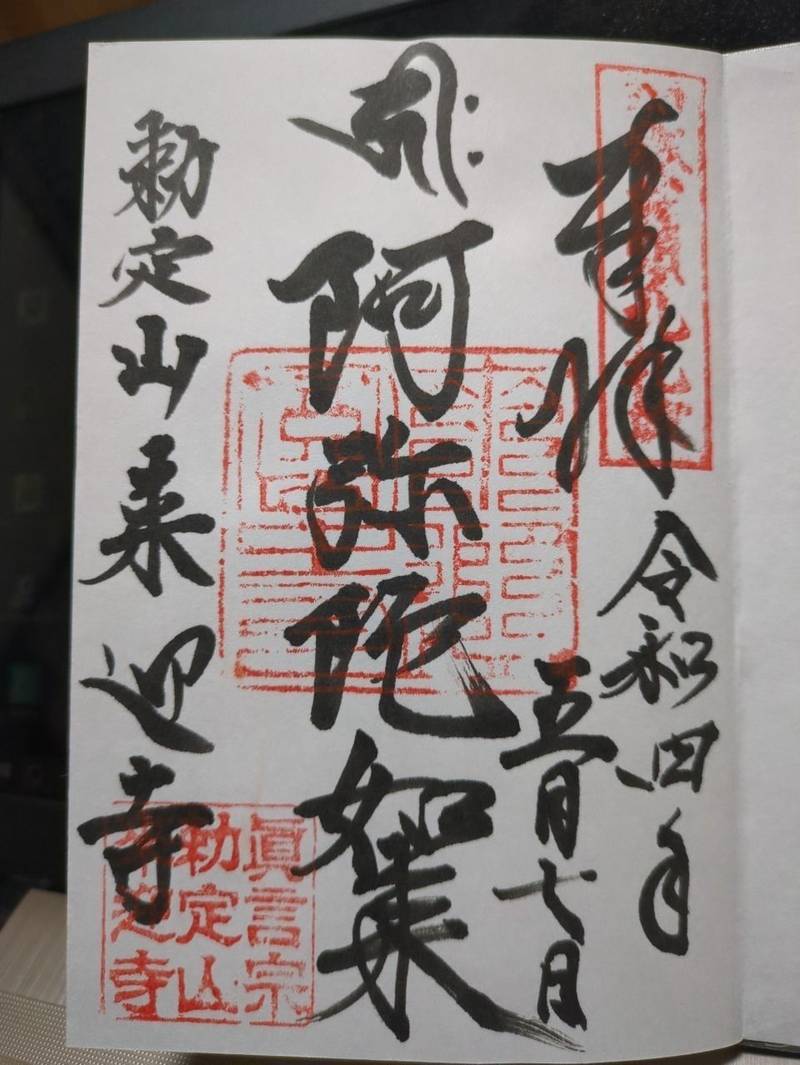 奉拝
令和四年
五月七日
阿弥陀如来
勅定山来迎寺
眞言宗
勅定山
来迎寺